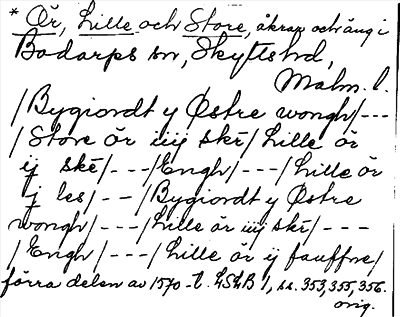 * Ör, Lille och Store, åkrar och äng i
Bodarps sn, Skytts hd,
Malm. l.
/Bygiordt y Østre wongh/---
/Store ör iiij ske/Lille ör
ij ske/---/Engh/---/Lille ör
j les/--/Bygiordt y Østre
wongh/---/Lille ör iiij ske/---
/Engh/---/Lille ör ij fauffne/
förra delen av 1570-t. LSkB 1, ss. 353, 355, 356.
orig.